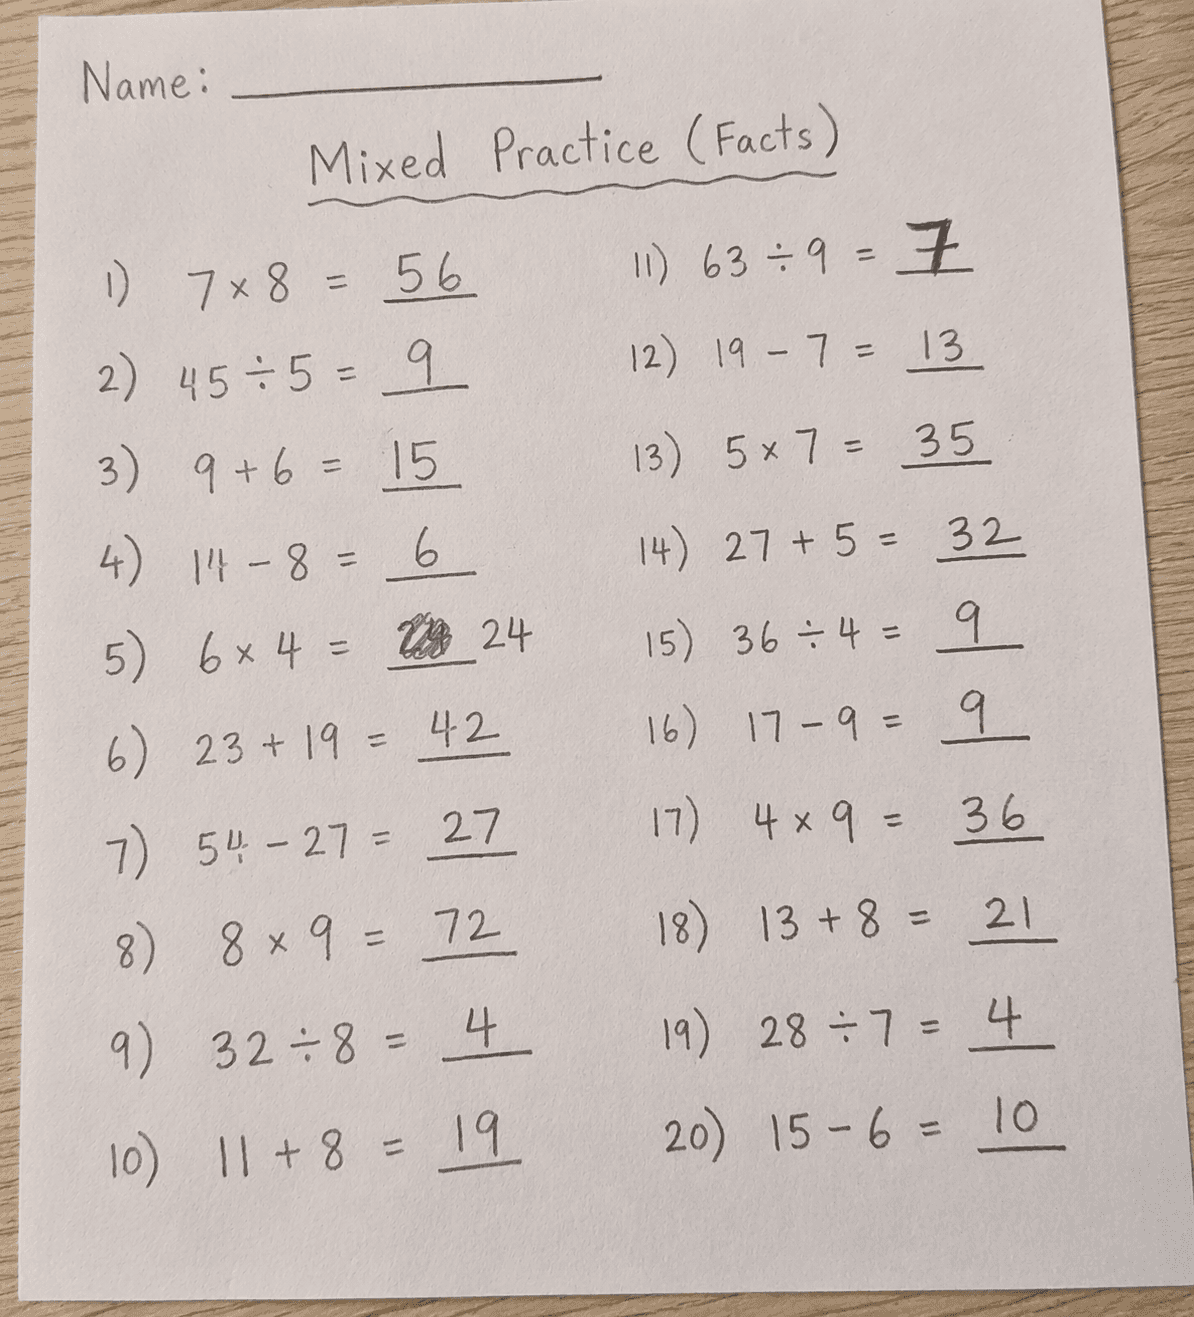 Name:
Mixed Practice (Facts)
1) 7 × 8 = 56
2) 45 ÷ 5 = 9
3) 9 + 6 = 15
4) 14 - 8 = 6
5) 6 × 4 = 24
6) 23 + 19 = 42
7) 54 - 27 = 27
8) 8 × 9 = 72
9) 32 ÷ 8 = 4
10) 11 + 8 = 19
11) 63 ÷ 9 = 7
12) 19 - 7 = 13
13) 5 × 7 = 35
14) 27 + 5 = 32
15) 36 ÷ 4 = 9
16) 17 - 9 = 9
17) 4 × 9 = 36
18) 13 + 8 = 21
19) 28 ÷ 7 = 4
20) 15 - 6 = 10